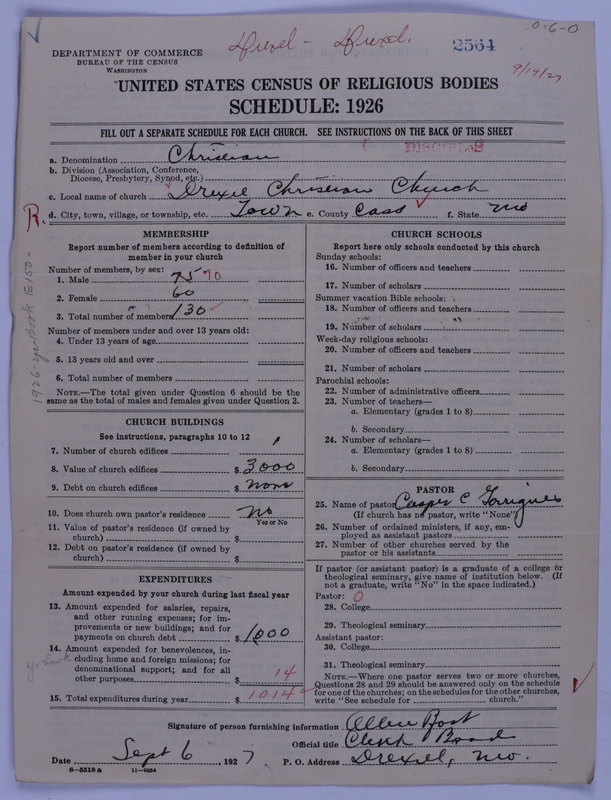 0-6-0
Drexel - Drexel.
2564
9/19/27
DEPARTMENT OF COMMERCE
BUREAU OF THE CENSUS
WASHINGTON
UNITED STATES CENSUS OF RELIGIOUS BODIES
SCHEDULE: 1926
FILL OUT A SEPARATE SCHEDULE FOR EACH CHURCH. SEE INSTRUCTIONS ON THE BACK OF THIS SHEET
a. Denomination Christian
b. Division (Association, Conference, Diocese, Presbytery, Synod, etc.)
c. Local name of church Drexel Christian Church
R. d. City, town, village, or township, etc. Town e. County Cass f. State Mo
MEMBERSHIP
Report number of members according to definition of
member in your church
Number of members, by sex:
1. Male 75 70
2. Female 60
3. Total number of members 130
Number of members under and over 13 years old:
4. Under 13 years of age
5. 13 years old and over
6. Total number of members
NOTE.—The total given under Question 6 should be
same as the total of males and females given under Question 3.
CHURCH BUILDINGS
See instructions, paragraphs 10 to 12
7. Number of church edifices 1
8. Value of church edifices $ 3000
9. Debt on church edifices $ none
10. Does church own pastor's residence no
Yes or No
11. Value of pastor's residence (if owned by
church) $
12. Debt on pastor's residence (if owned by
church) $
EXPENDITURES
Amount expended by your church during last fiscal year
13. Amount expended for salaries, repairs,
and other running expenses; for im-
provements or new buildings; and for
payments on church debt $ 1000
14. Amount expended for benevolences, in-
cluding home and foreign missions; for
denominational support; and for all
other purposes $ 14
15. Total expenditures during year $ 1014
CHURCH SCHOOLS
Report here only schools conducted by this church
Sunday schools:
16. Number of officers and teachers
17. Number of scholars
Summer vacation Bible schools:
18. Number of officers and teachers
19. Number of scholars
Week-day religious schools:
20. Number of officers and teachers
21. Number of scholars
Parochial schools:
22. Number of administrative officers
23. Number of teachers—
a. Elementary (grades 1 to 8)
b. Secondary
24. Number of scholars—
a. Elementary (grades 1 to 8)
b. Secondary
PASTOR
25. Name of pastor Casper C Garrigues
(If church has no pastor, write "None")
26. Number of ordained ministers, if any, em-
ployed as assistant pastors
27. Number of other churches served by the
pastor or his assistants
If pastor (or assistant pastor) is a graduate of a college or
theological seminary, give name of institution below. (If
not a graduate, write "No" in the space indicated.)
Pastor: 0
28. College
29. Theological seminary
Assistant pastor:
30. College
31. Theological seminary
NOTE.—Where one pastor serves two or more churches,
Questions 28 and 29 should be answered only on the schedule
for one of the churches; on the schedules for the other churches,
write "See schedule for church."
Signature of person furnishing information Allen Bost
Official title Clerk Board
Date Sept 6, 1927 P. O. Address Drexel, Mo.
8—5518a 11—9034